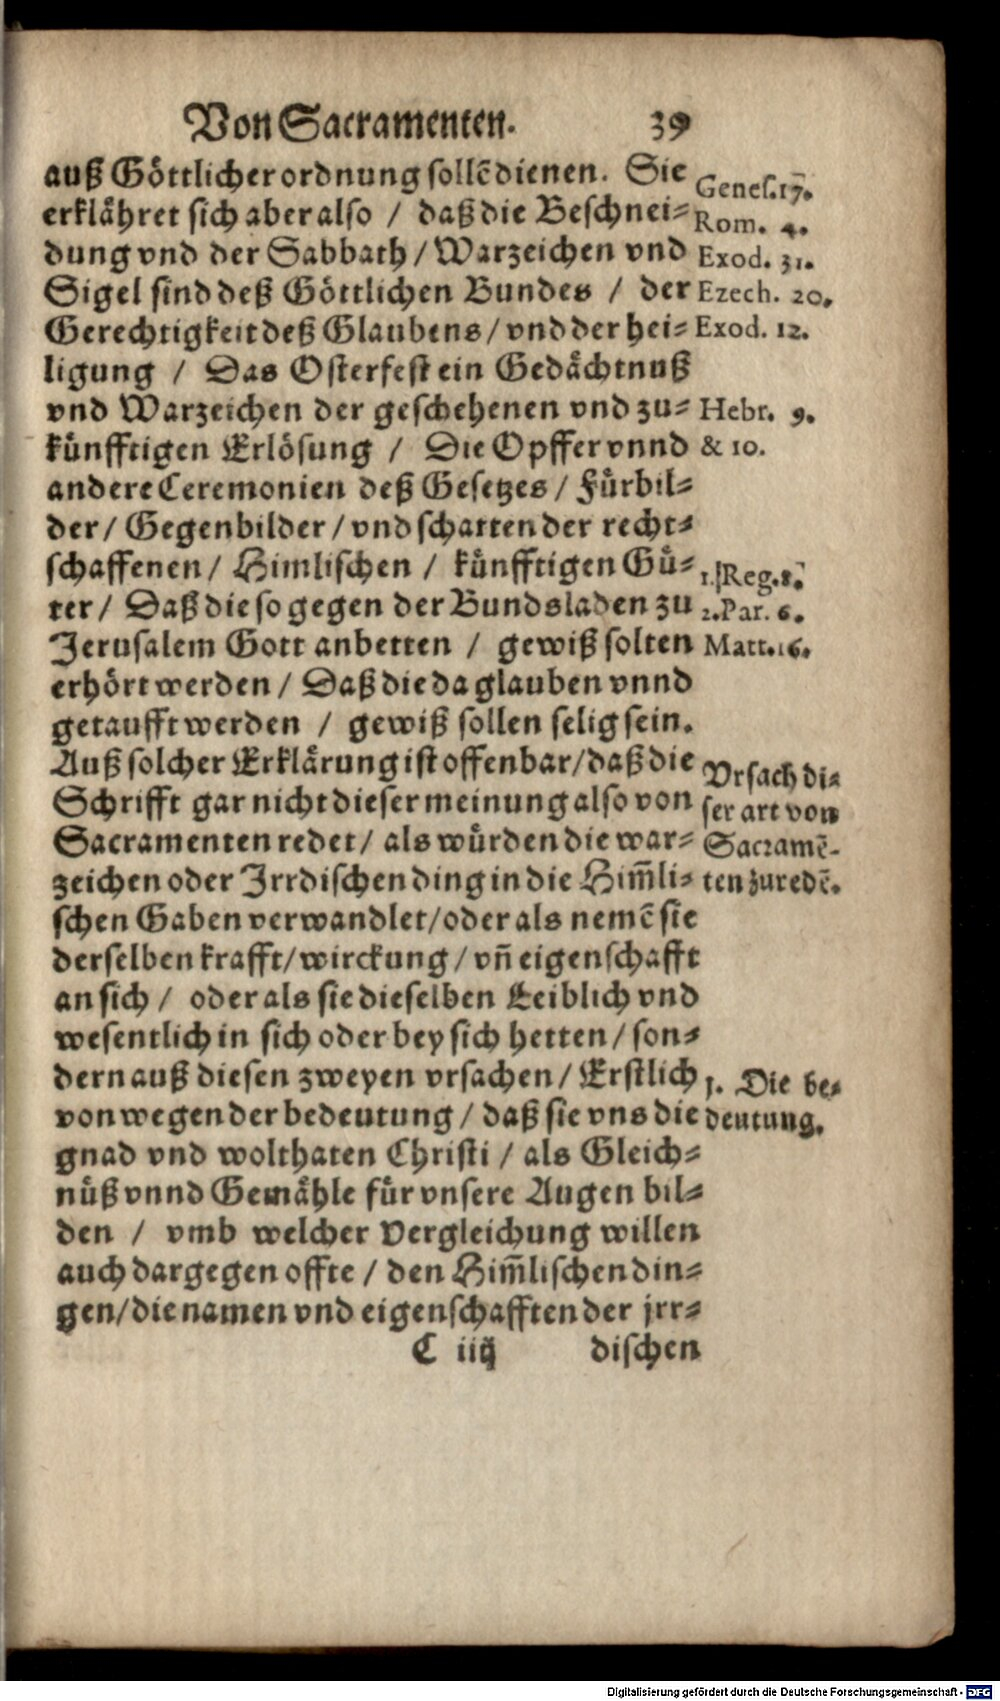 Von Sacramenten. 39
auß Göttlicher ordnung sollē dienen. Sie
erklähret sich aber also / daß die Beschnei⸗
dung vnd der Sabbath / Warzeichen vnd
Sigel sind deß Göttlichen Bundes / der
Gerechtigkeit deß Glaubens / vnd der hei⸗
ligung / Das Osterfest ein Gedächtnuß
vnd Warzeichen der geschehenen vnd zu⸗
künfftigen Erlösung / Die Opffer vnnd
andere Ceremonien deß Gesetzes / Fürbil⸗
der / Gegenbilder / vnd schatten der recht⸗
schaffenen / Himlischen / künfftigen Gü⸗
ter / Daß die so gegen der Bundsladen zu
Jerusalem Gott anbetten / gewiß solten
erhört werden / Daß die da glauben vnnd
getaufft werden / gewiß sollen selig sein.
Auß solcher Erklärung ist offenbar / daß die
Schrifft gar nicht dieser meinung also von
Sacramenten redet / als würden die war⸗
zeichen oder Irrdischen ding in die Him̄li⸗
schen Gaben verwandlet / oder als nemē sie
derselben krafft / wirckung / vn̄ eigenschafft
an sich / oder als sie dieselben Leiblich vnd
wesentlich in sich oder bey sich hetten / son⸗
dern auß diesen zweyen vrsachen / Erstlich
von wegen der bedeutung / daß sie vns die
gnad vnd wolthaten Christi / als Gleich⸗
nüß vnnd Gemähle für vnsere Augen bil⸗
den / vmb welcher Vergleichung willen
auch dargegen offte / den Him̄lischen din⸗
gen / die namen vnd eigenschafften der jrr⸗
C iiij dischen
Genes. 17.
Rom. 4.
Exod. 31.
Ezech. 20.
Exod. 12.
Hebr. 9.
& 10.
1. Reg. 8.
2. Par. 6.
Matt. 16.
Vrsach di⸗
ser art von
Sacramē-
ten zu redē.
1. Die be⸗
deutung.
Digitalisierung gefördert durch die Deutsche Forschungsgemeinschaft - DFG